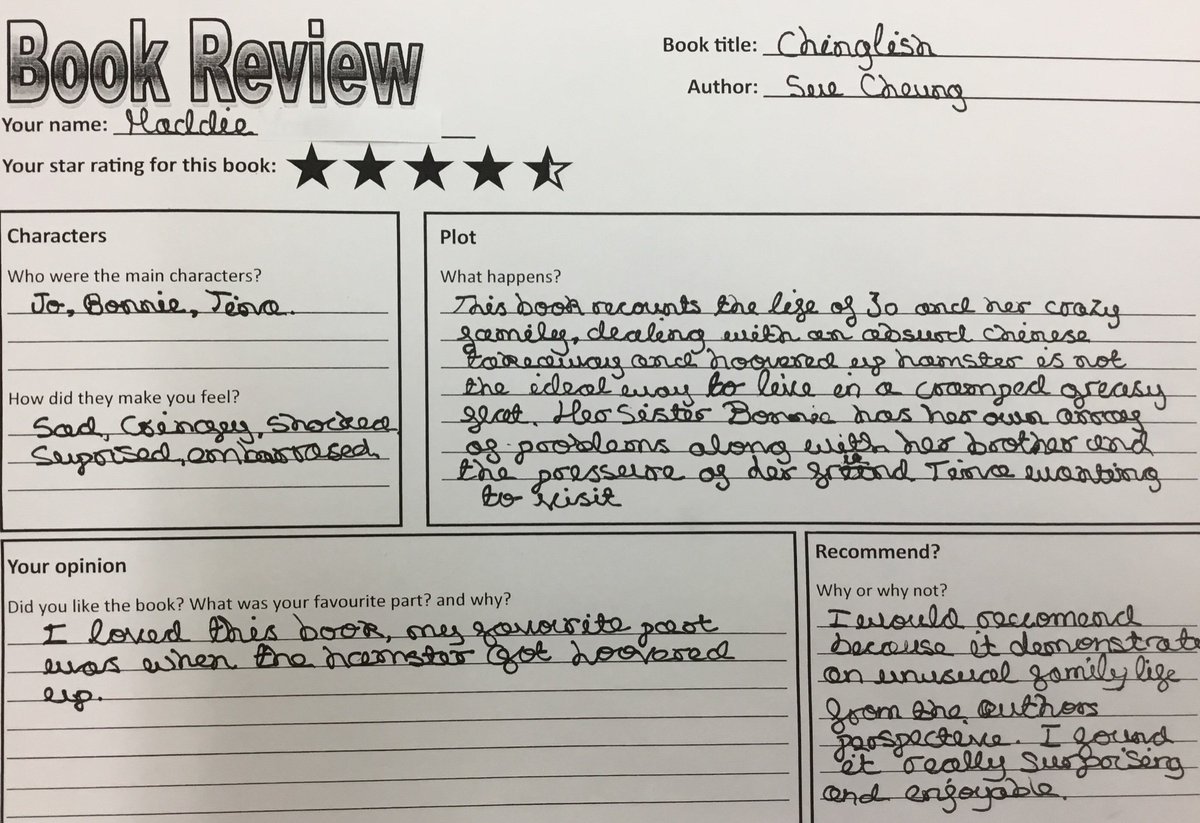 Book Review
Book title: Chinglish
Author: Sue Cheung
Your name: Maddie
Your star rating for this book:
Characters
Who were the main characters?
Jo, Bonnie, Tina.
How did they make you feel?
Sad, Cringey, Shocked,
Suprised, embarrased.
Plot
What happens?
This book recounts the life of Jo and her crazy
family, dealing with an absurd chinese
takeaway and hoovered up hamster is not
the ideal way to live in a cramped greasy
flat. Her Sister Bonnie has her own array
of problems along with her brother and
the pressure of her friend Tina wanting
to visit
Your opinion
Did you like the book? What was your favourite part? and why?
I loved this book, my favourite part
was when the hamster Got hoovered
up.
Recommend?
Why or why not?
I would reccomend
because it demonstrate
an unusual family life
from the authors
perspective. I found
it really surpoising
and enjoyable.